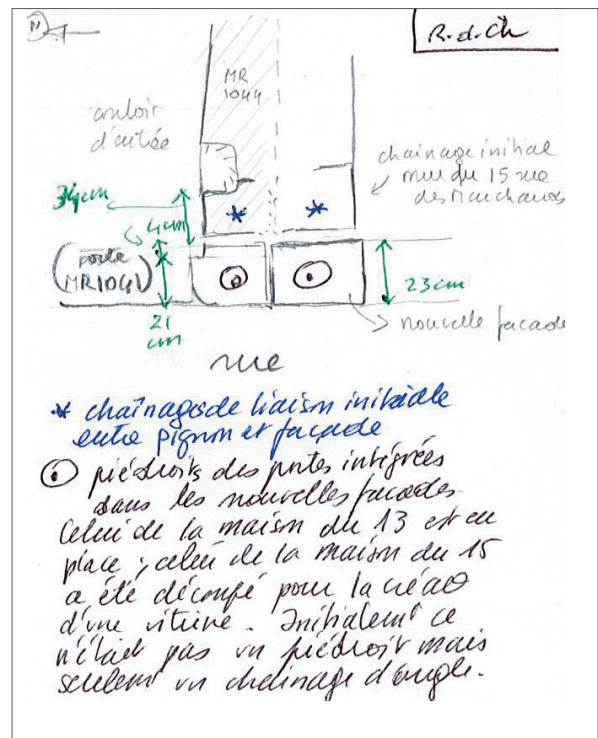 N
R.d.Ch
MR
1044
couloir
d'entrée
chainage initial
mur du 15 rue
des Marchands
34cm
4cm
(porte
MR1041)
21
cm
23cm
nouvelle facade
rue
* chaînages de liaison initiale
entre pignon et façade
piédroits des portes intégrées
dans les nouvelles facades
Celui de la maison du 13 est en
place ; celui de la maison du 15
a été découpé pour la créao
d'une vitrine. Initialemt ce
n'était pas un piédroit mais
seulemt un chainage d'angle.